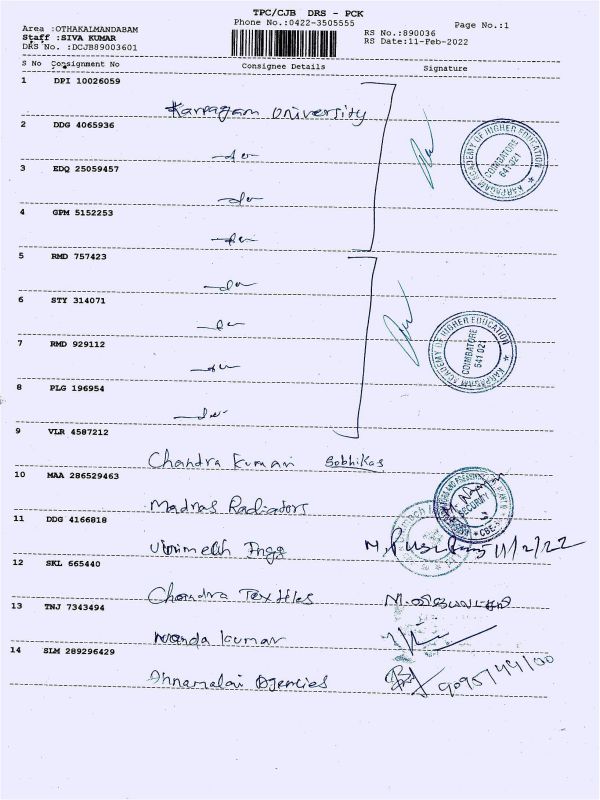 TPC/CJB DRS - PCK
Phone No.:0422-3505555
Page No.:1
Area :OTHAKALMANDABAM
Staff :SIVA KUMAR
DRS No. :DCJB89003601
RS No.:890036
RS Date:11-Feb-2022
S No Consignment No Consignee Details Signature
1 DPI 10026059
Karpagam University
2 DDG 4065936
-do-
3 EDQ 25059457
-do-
4 GPM 5152253
-do-
5 RMD 757423
-do-
6 STY 314071
-do-
7 RMD 929112
-do-
8 PLG 196954
-do-
9 VLR 4587212
Chandra Kumari
10 MAA 286529463
Madras Radiators
11 DDG 4166818
Engg 11/2/22
12 SKL 665440
Chandra Textiles
13 TNJ 7343494
Nanda Kumar
14 SLM 289296429
Annamalai Agencies
KARPAGAM ACADEMY OF HIGHER EDUCATION
COIMBATORE
641 021
KARPAGAM ACADEMY OF HIGHER EDUCATION
COIMBATORE
641 021
SECURITY
CBE